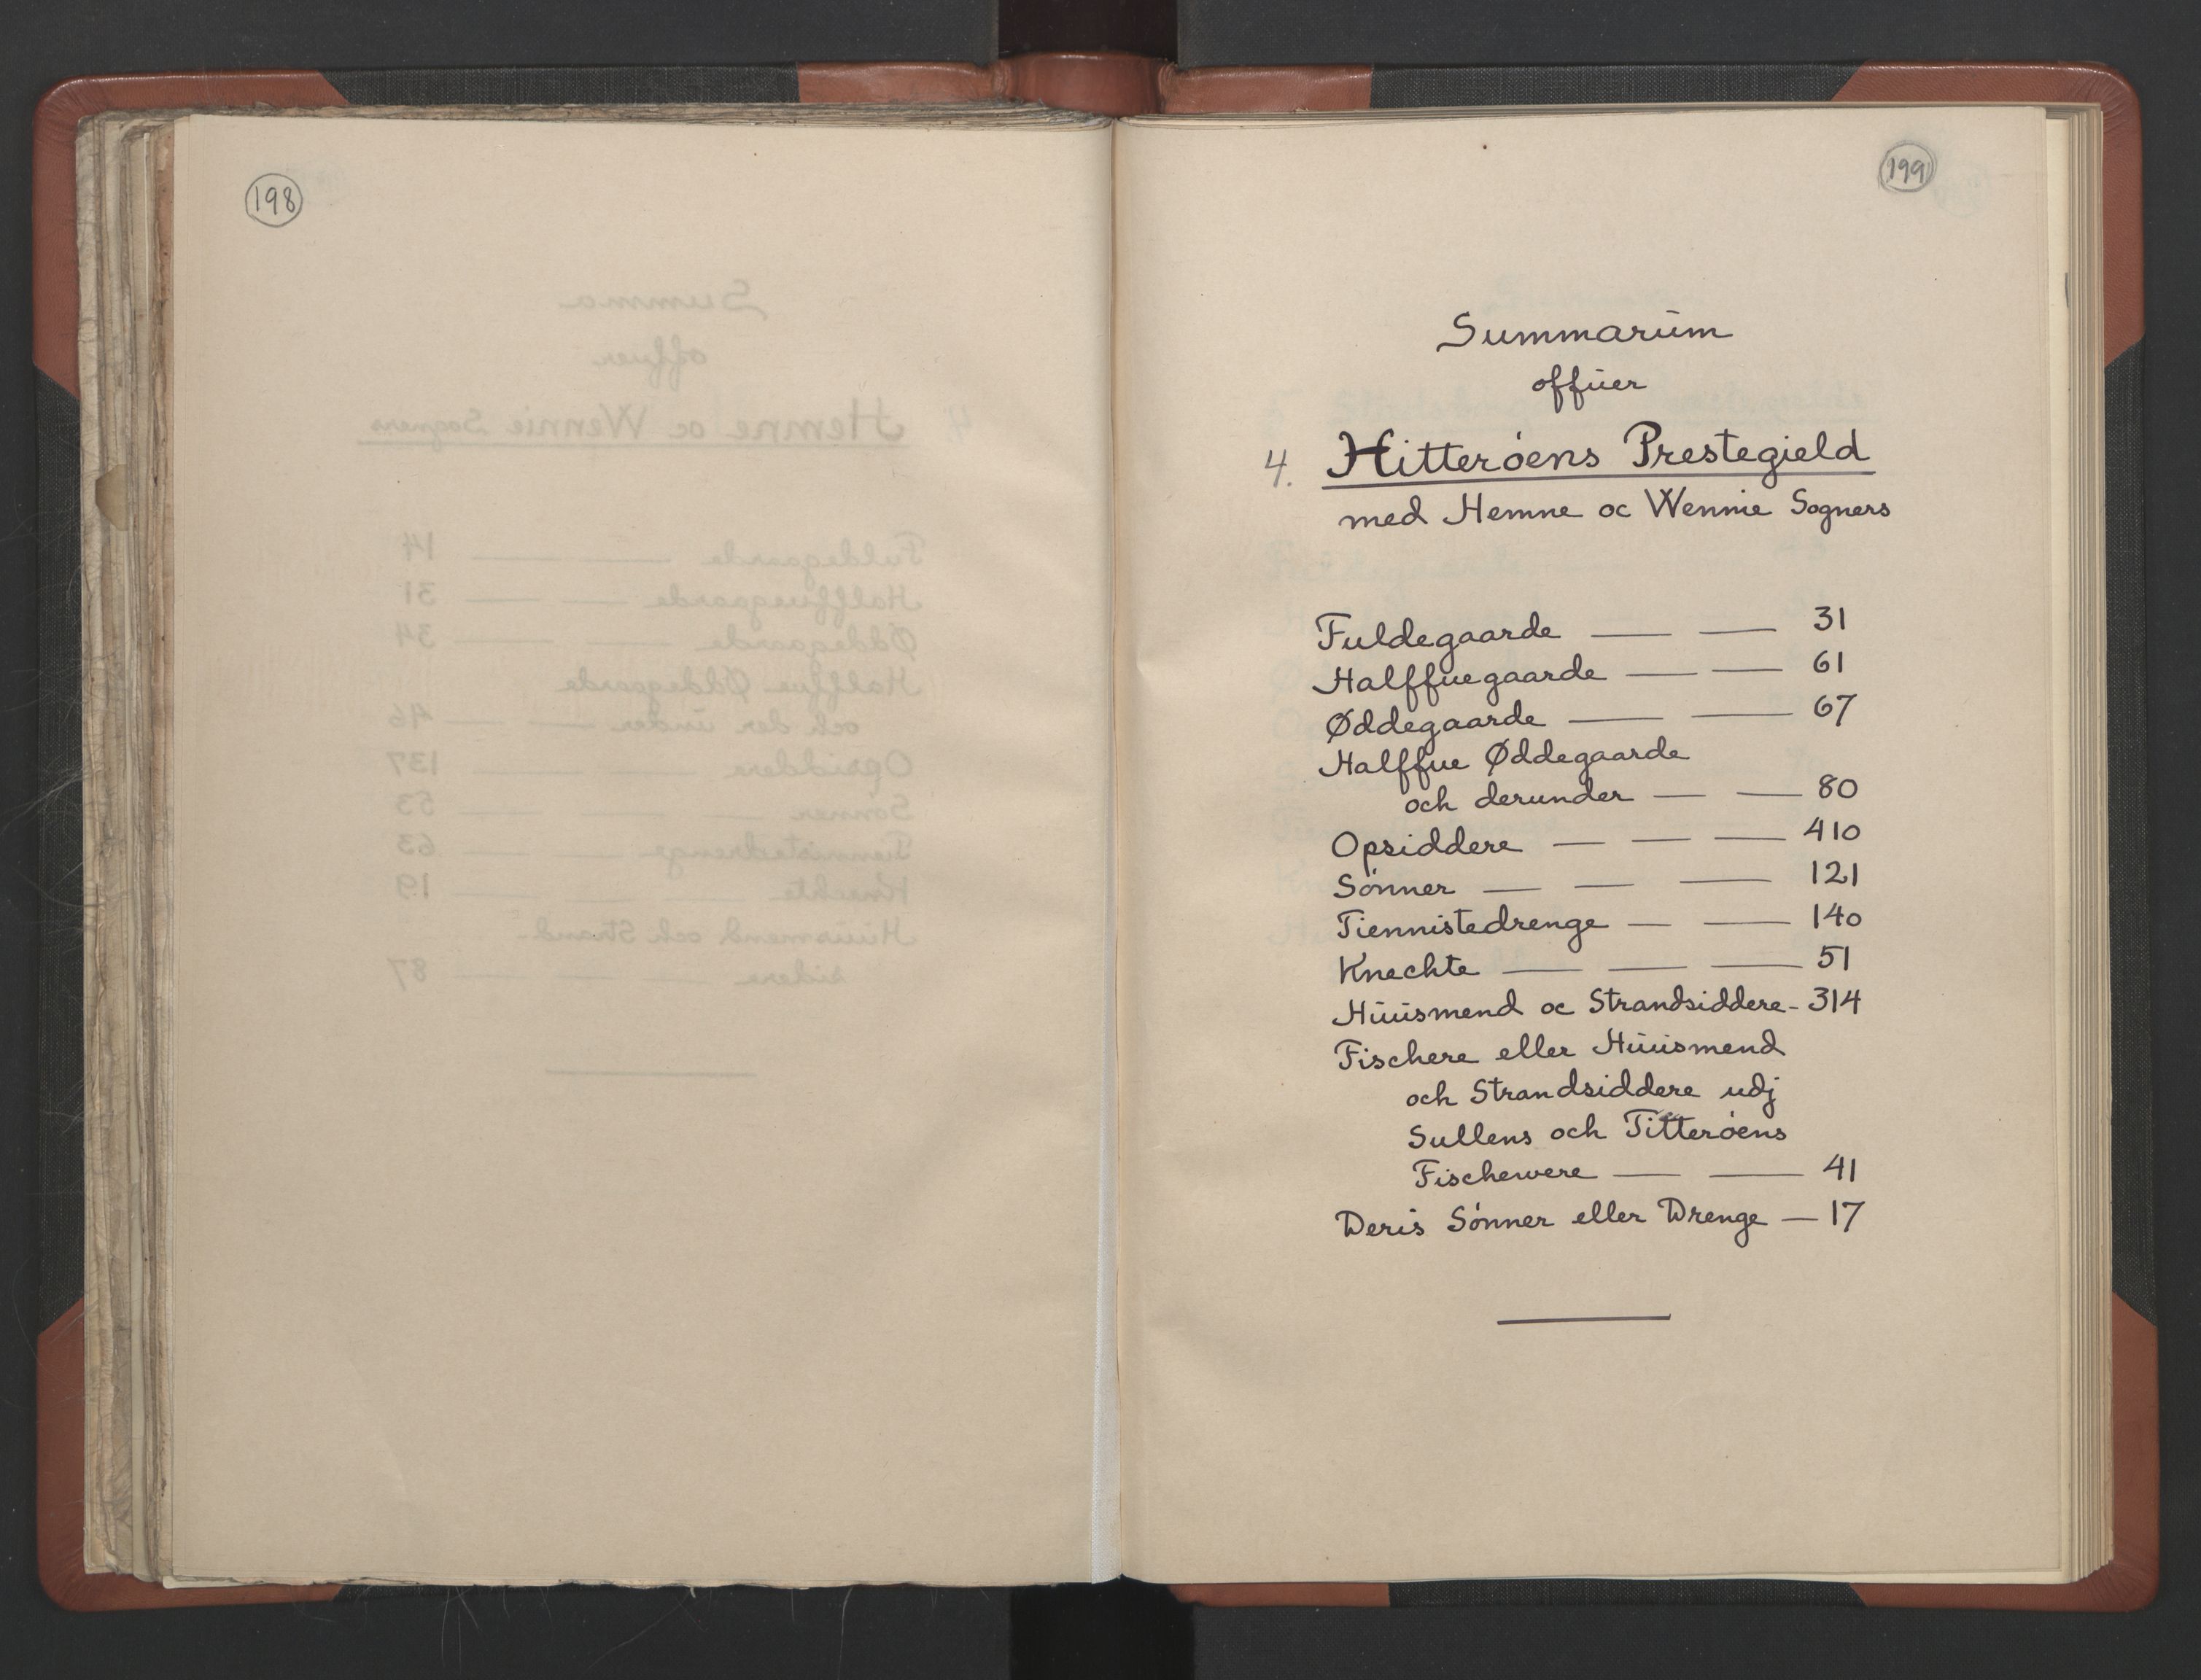 198
199
Summarüm
offüer
4. Hitterøens Prestegield
med Hemne oc Wennie Sogners
Fuldegaarde — — 31
Halffuegaarde — — 61
Øddegaarde — — 67
Halffue Øddegaarde
och derunder — — 80
Opsiddere — — — 410
Sønner — — — 121
Tiennistedrenge — — 140
Knechte — — — 51
Hüüsmend oc Strandsiddere - 314
Fischere eller Hüüsmend
och Strandsiddere udj
Sullens och Titterøens
Fischewere — — 41
Deris Sønner eller Drenge — 17